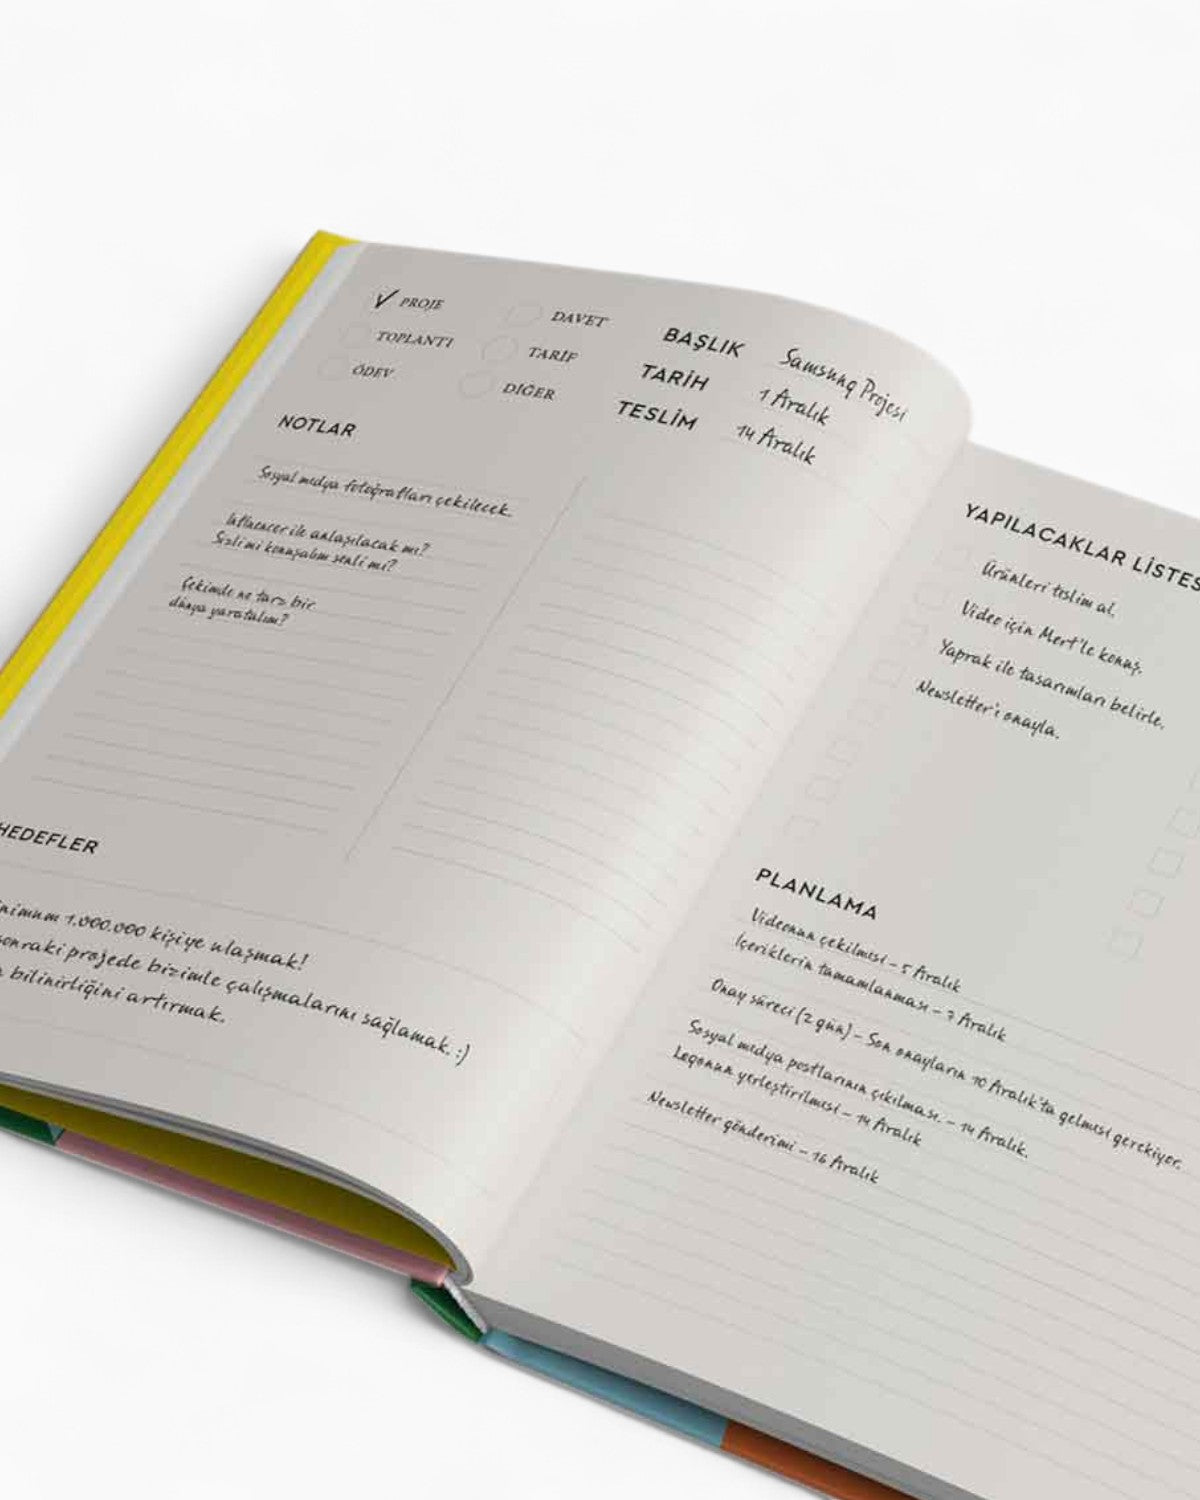 PROJE
DAVET
TOPLANTI
TARİF
ÖDEV
DİĞER
BAŞLIK Samsung Projesi
TARİH 1 Aralık
TESLİM 14 Aralık
NOTLAR
Sosyal medya fotoğrafları çekilecek.
Influencer ile anlaşılacak mı?
Sizli mi konuşalım senli mi?
Çekimde ne tarz bir
dünya yaratalım?
HEDEFLER
1.000.000 kişiye ulaşmak!
sonraki projede bizimle çalışmalarını sağlamak. :)
bilinirliğini artırmak.
YAPILACAKLAR LİSTES
Ürünleri teslim al.
Video için Mert'le konuş.
Yaprak ile tasarımları belirle.
Newsletter'ı onayla.
PLANLAMA
Videonun çekilmesi – 5 Aralık
İçeriklerin tamamlanması – 7 Aralık
Onay süreci (2 gün) – Son onayların 10 Aralık'ta gelmesi gerekiyor.
Sosyal medya postlarının çıkılması. – 14 Aralık.
Logonun yerleştirilmesi – 14 Aralık
Newsletter gönderimi – 16 Aralık